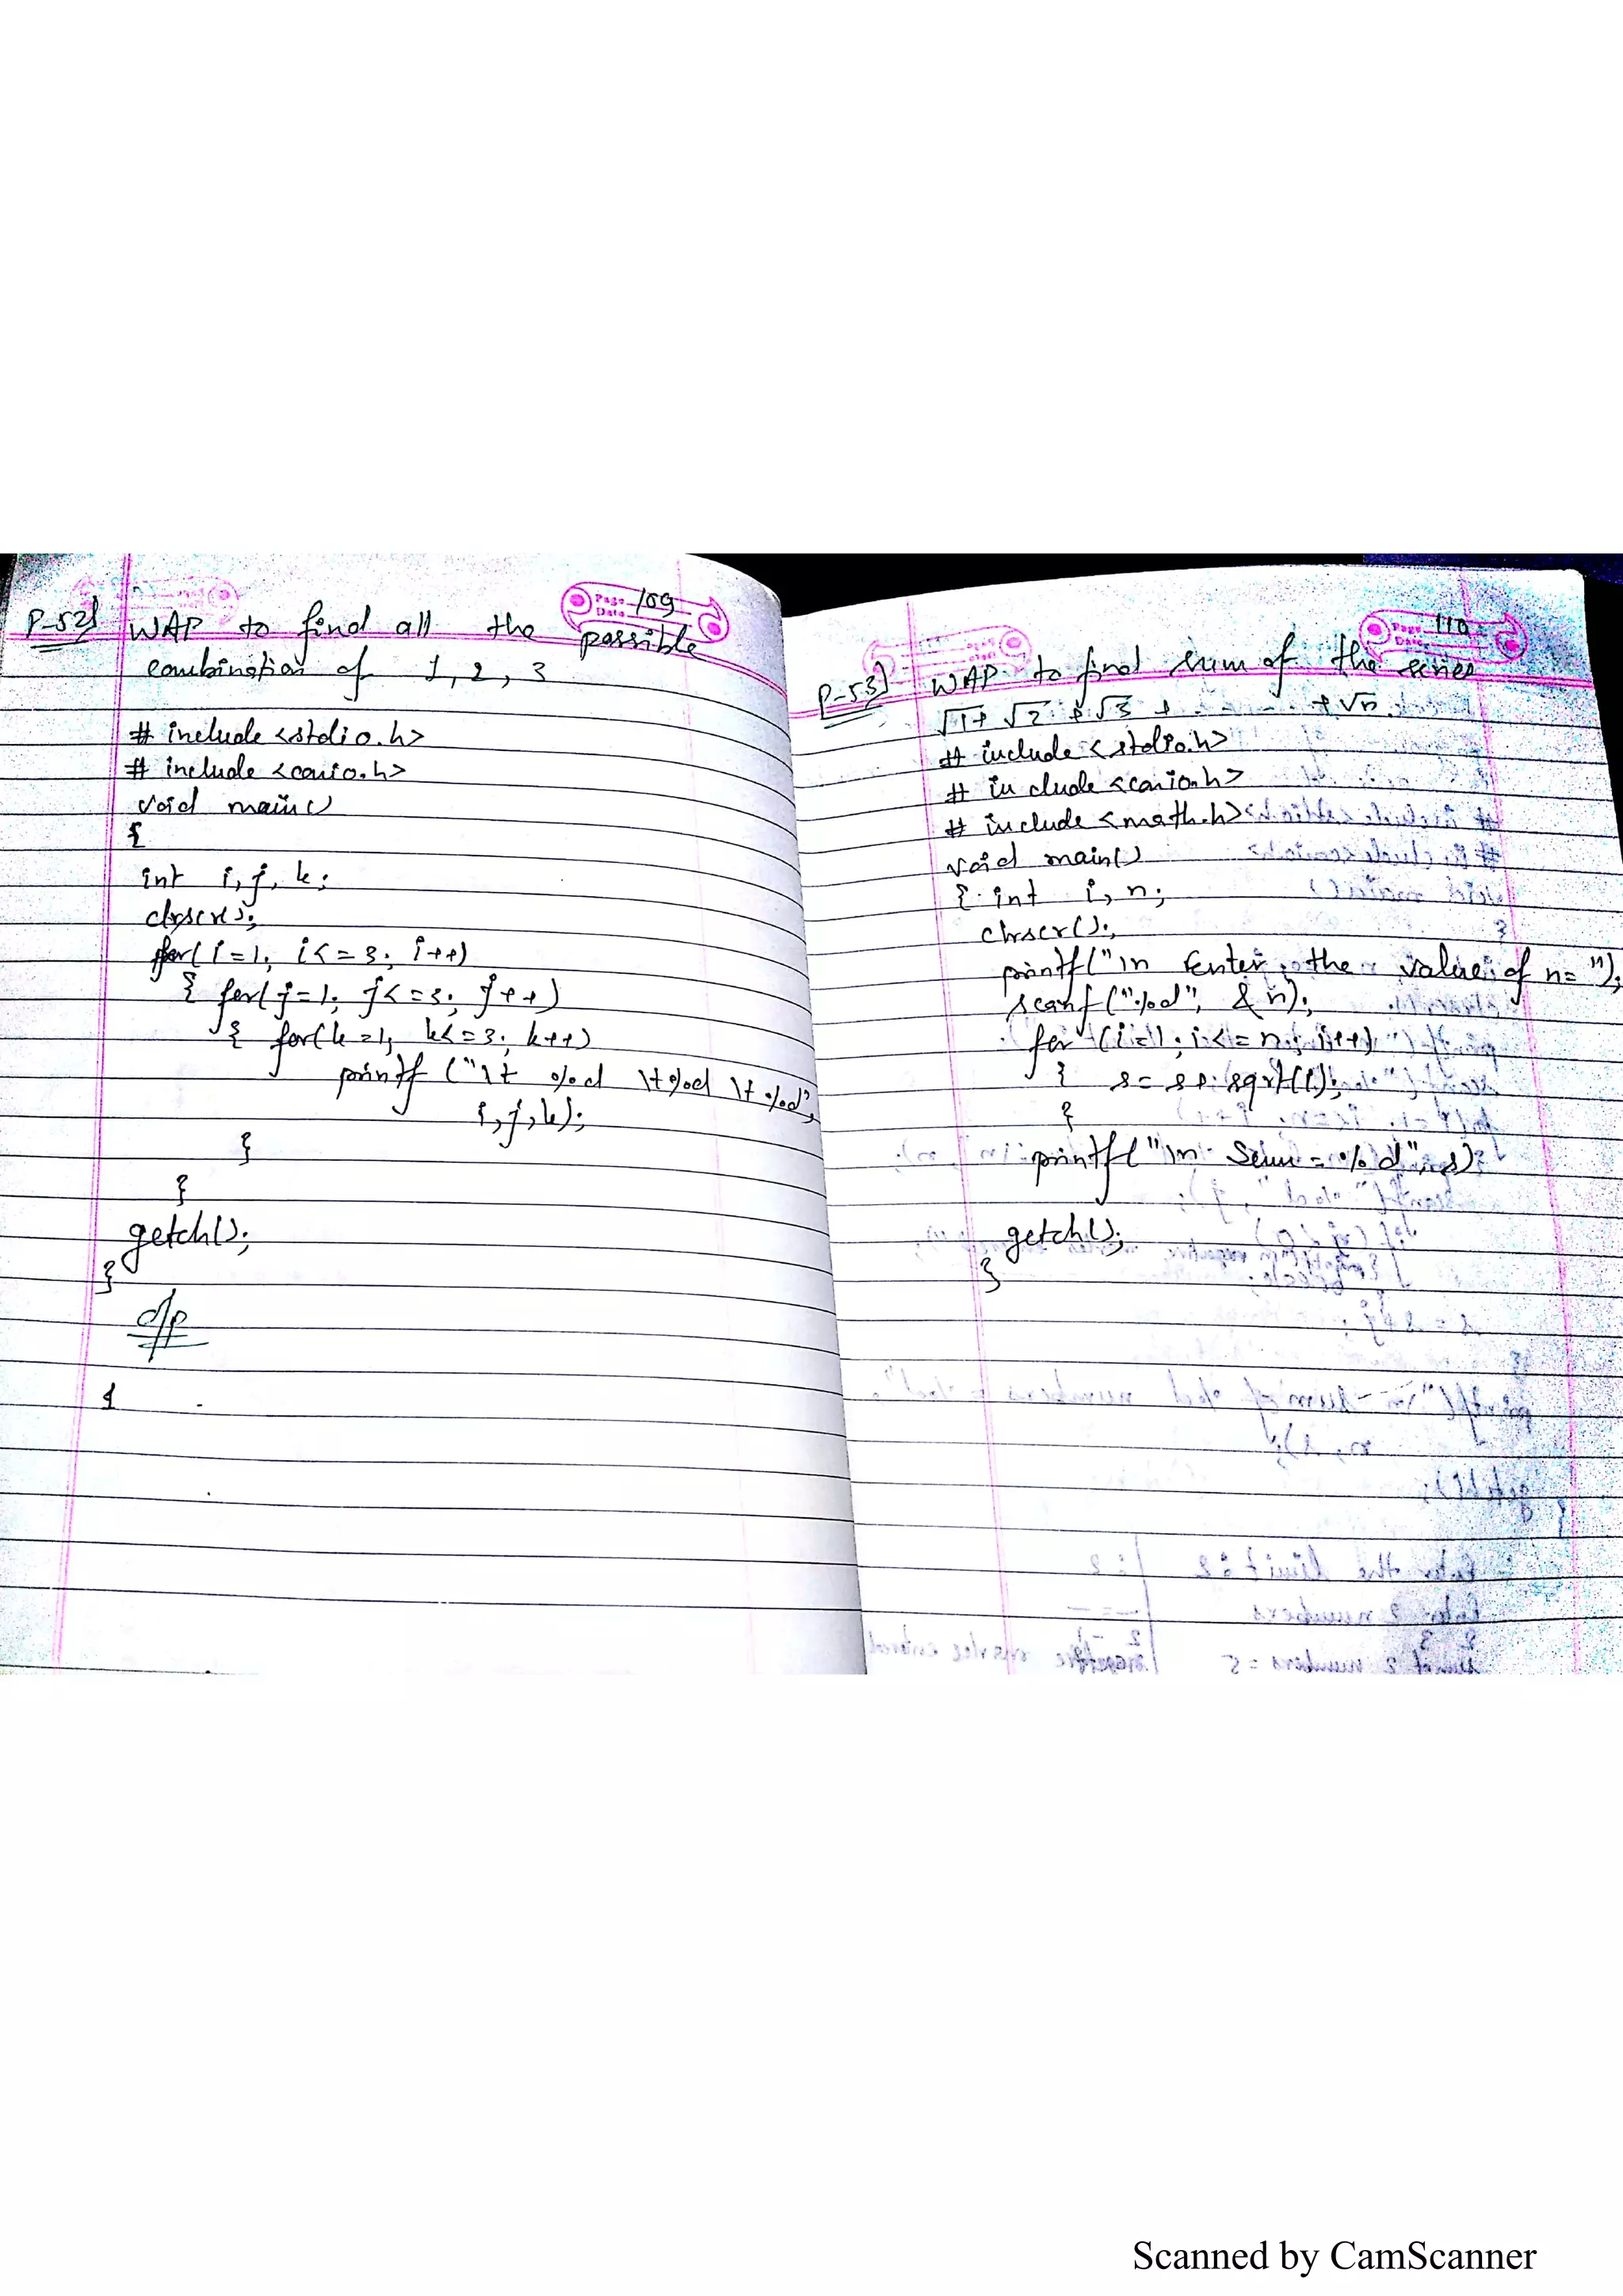 Page 109
Date
P-52] WAP to find all the possible
combination of 1, 2, 3
# include <stdio.h>
# include <conio.h>
void main()
{
int i, j, k;
clrscr();
for( i=1; i<=3; i++)
{ for( j=1; j<=3; j++)
{ for(k=1; k<=3; k++)
printf ("\t %d \t%d \t %d",
i, j, k);
}
}
getch();
}
o/p
1
Page 110
Date
P-53] WAP to find sum of the series
√1+ √2 + √3 + - - - - - - + √n.
# include <stdio.h>
# include <conio.h>
# include <math.h>
void main()
{ int i, n;
clrscr();
printf("\n Enter the value of n= ");
scanf("%d", &n);
for (i=1; i<=n; i++)
{ s= s+ sqrt(i);
}
printf("\n Sum = %d", s);
getch();
}
Scanned by CamScanner